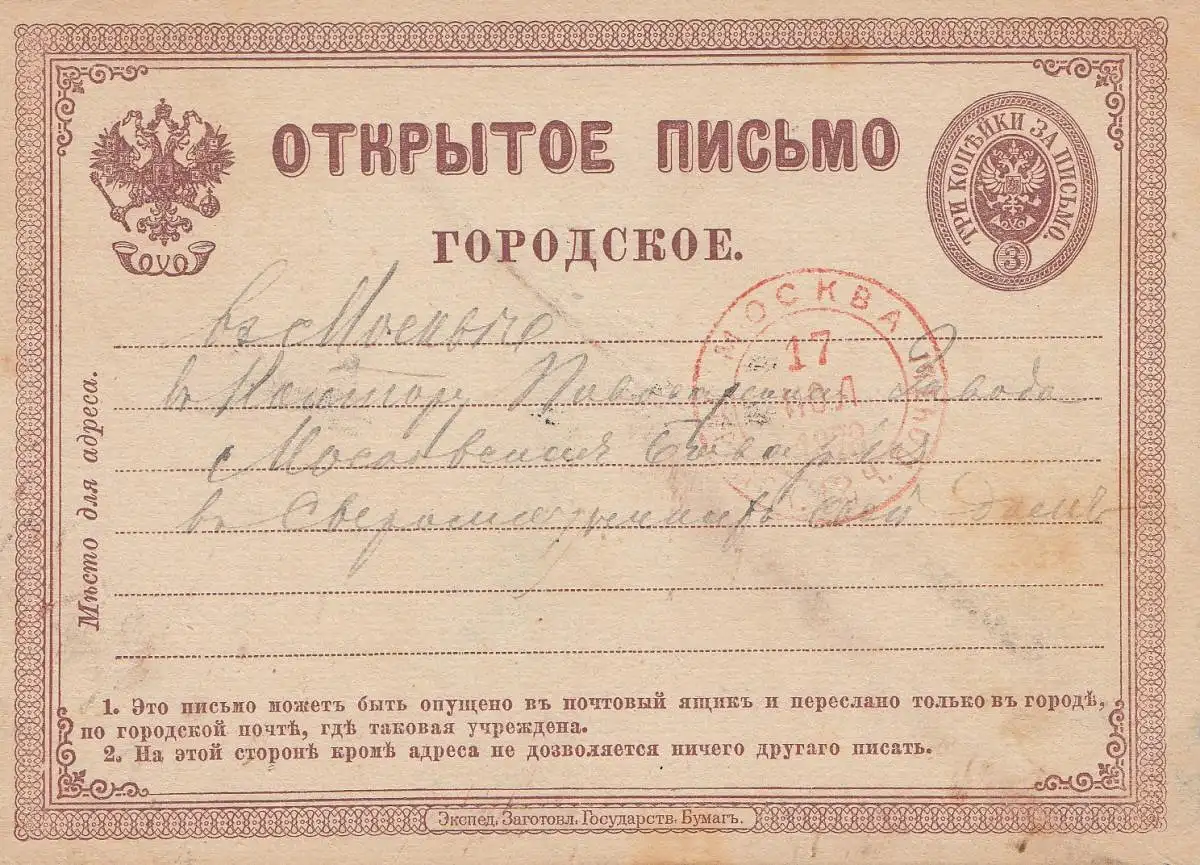 ОТКРЫТОЕ ПИСЬМО
ГОРОДСКОЕ.
ТРИ КОПѢЙКИ ЗА ПИСЬМО.
3
МОСКВА
17
ІЮЛ
Мѣсто для адреса.
въ
въ Контору Пивовареннаго Завода
Московская Бавария
въ домѣ
1. Это письмо можетъ быть опущено въ почтовый ящикъ и переслано только въ городѣ,
по городской почтѣ, гдѣ таковая учреждена.
2. На этой сторонѣ кромѣ адреса не дозволяется ничего другаго писать.
Экспед. Заготовл. Государств. Бумагъ.